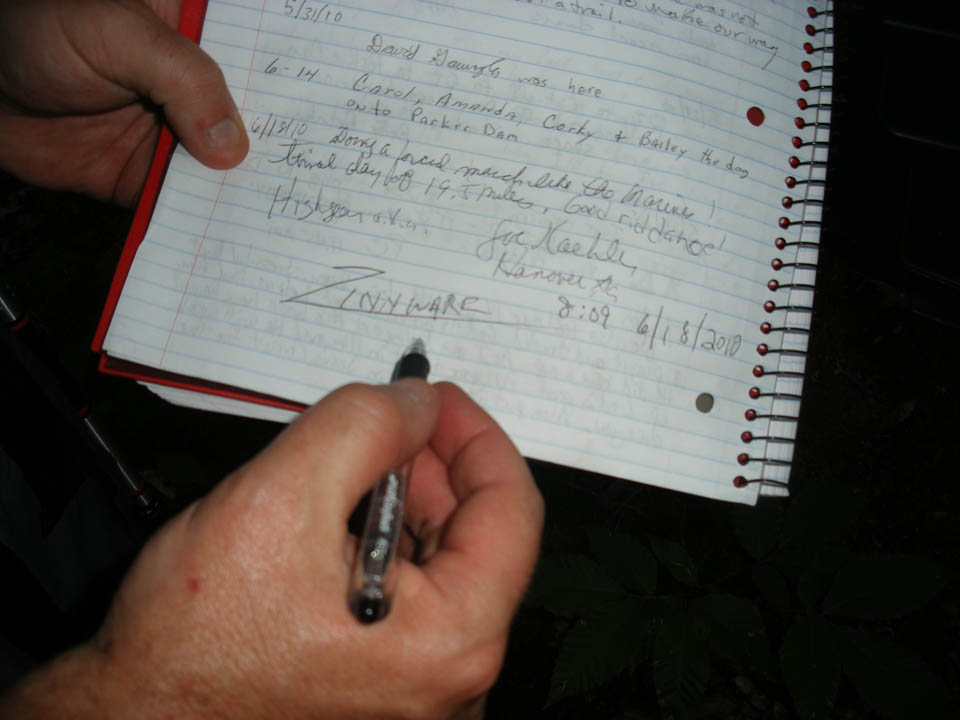 was not
to make our way
a trail.
5/31/10
David was here
6-14 Carol, Amanda, Corky & Bailey the dog
on to Parker Dam
6/18/10 Doing a forced march like the Marines!
final day of 19.5 miles, Good riddance!
a.k.a. Joe
Hanover Pa
ZINYWARE 8:09 6/18/2010